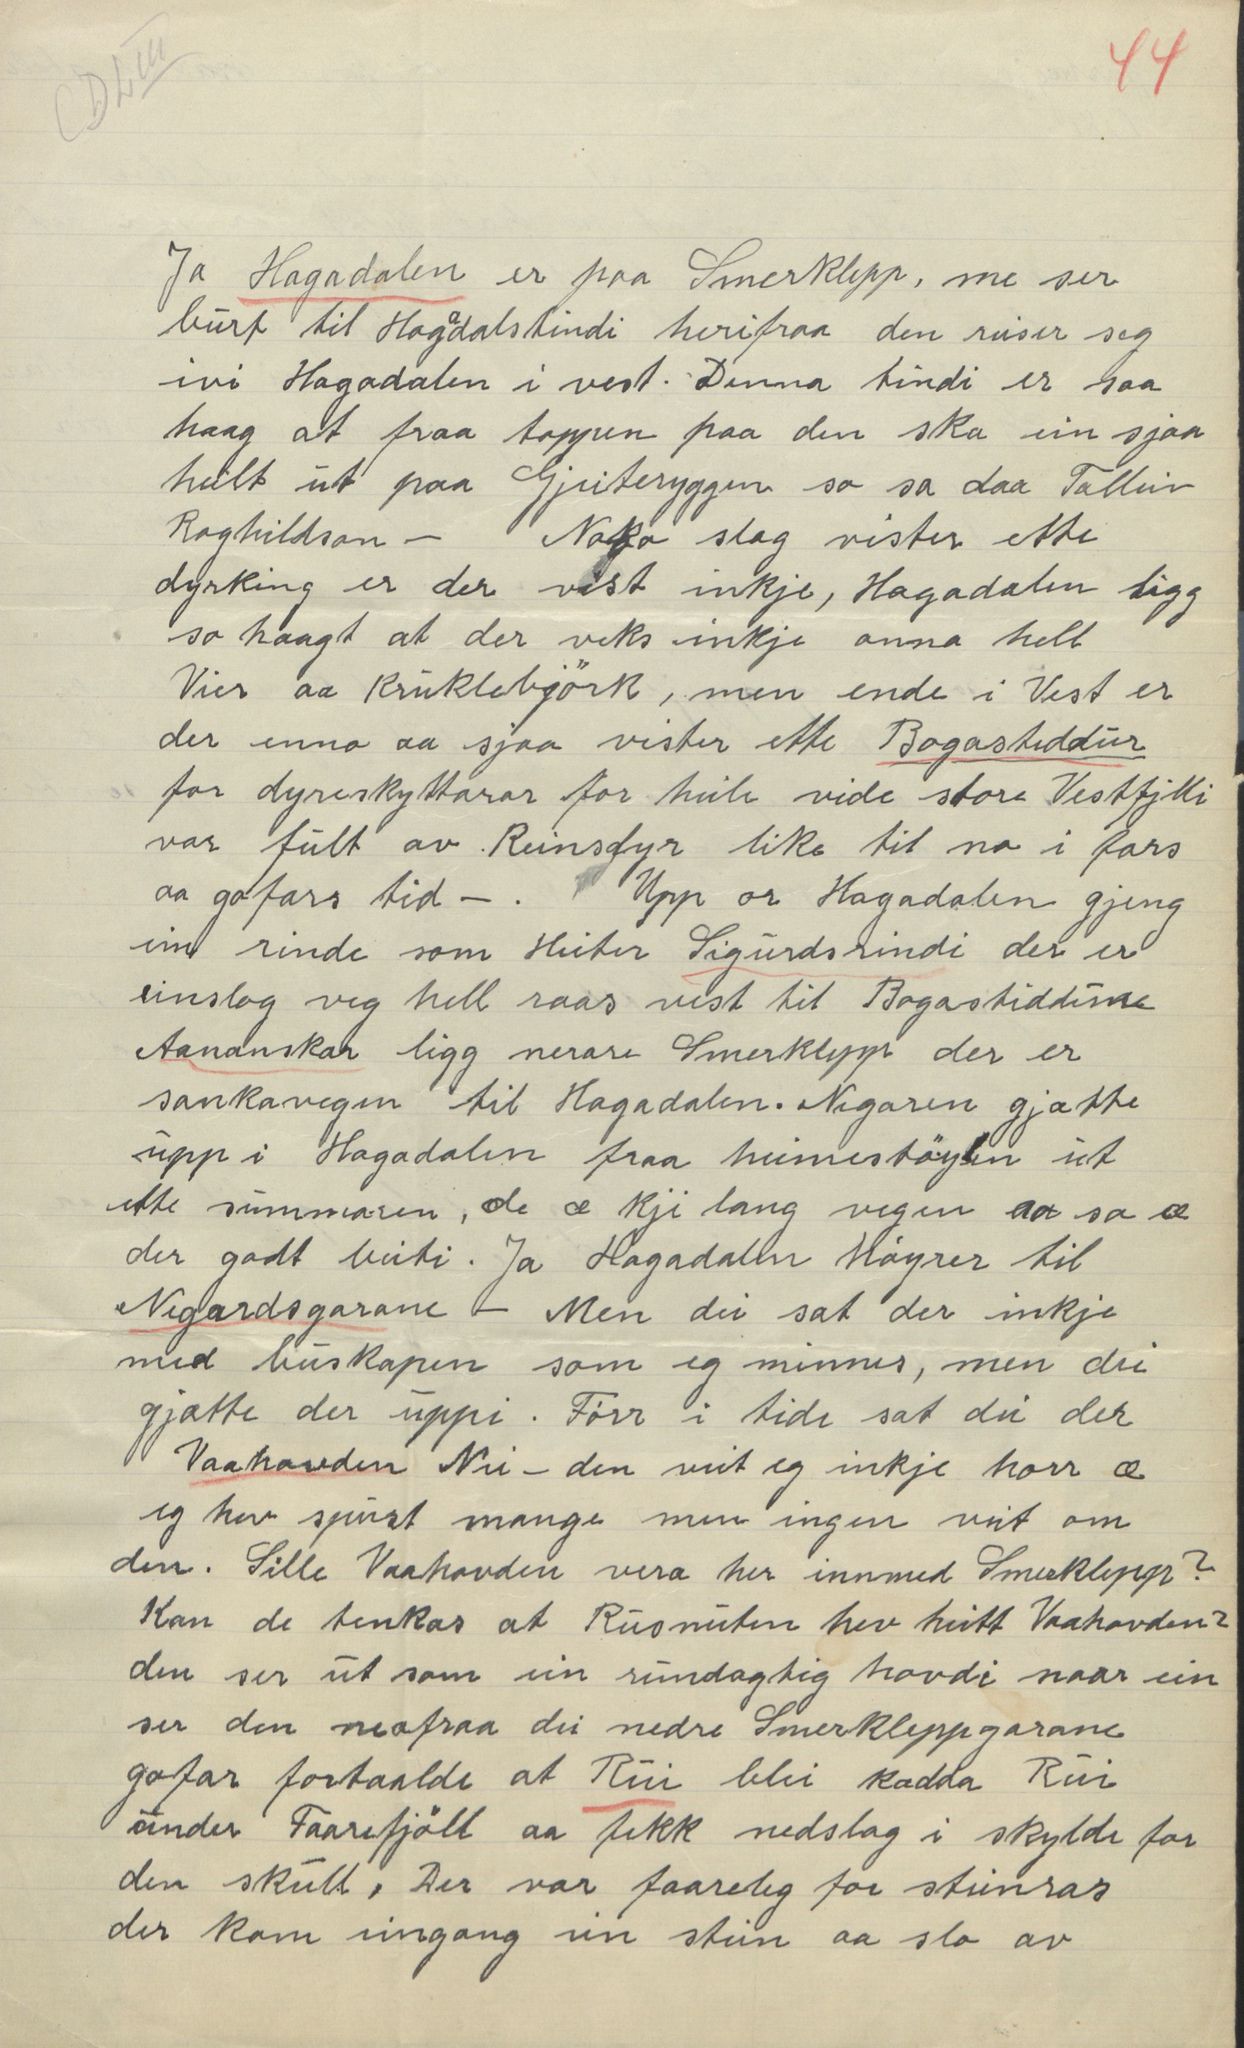 CDLIII
44
Ja Hagadalen er paa Smerklepp, me ser
burt til Hagadalstindi herifraa den reiser seg
ivi Hagadalen i vest. Denna tindi er saa
haag at fraa toppen paa den ska ein sjaa
heilt ut paa Gjeiteryggen so sa daa Talleiv
Roghildson – Noko slag vister ette
dyrking er der vist inkje, Hagadalen ligg
so haagt at der veks inkje anna hell
Vier aa Krüklebjörk, men ende i Vest er
der enno aa sjaa vister ette Bogasteddur
for dyreskyttarar for heile vide store Vestfjlli
var fult av Reinsdyr like til no i fars
aa gofars tid – . Upp or Hagadalen gjeng
ein rinde som Heiter Sigurdsrindi der er
einslag veg hell raas vest til Bogastiddune
Aananskar ligg nerare Smerklepp der er
sankavegen til Hagadalen. Nigaren gjætte
upp i Hagadalen fraa heimestöylen ut
ette summaren, de æ kji lang vegen aa so æ
der godt beiti. Ja Hagadalen höyrer til
Nigardsgarane – Men dei sat der inkje
med buskapen som eg minnes, men dei
gjætte der uppi. Förr i tide sat dei der
Vaahovden Nei – den veit eg inkje horr æ
eg hev spurt mange men ingen veit om
den. Sille Vaahovden vera her innmed Smerklepp?
Kan de tenkas at Rusnuten hev heitt Vaahovden?
den ser ut som ein rundagtig hovdi naar ein
ser den neafraa dei nedre Smerkleppgarane
gofar fortaalde at Rui blei kadda Rui
under Faarefjöll aa fekk nedslag i skylde for
den skull, Der var faareleg for steinras
der kom eingang ein stein aa slo av